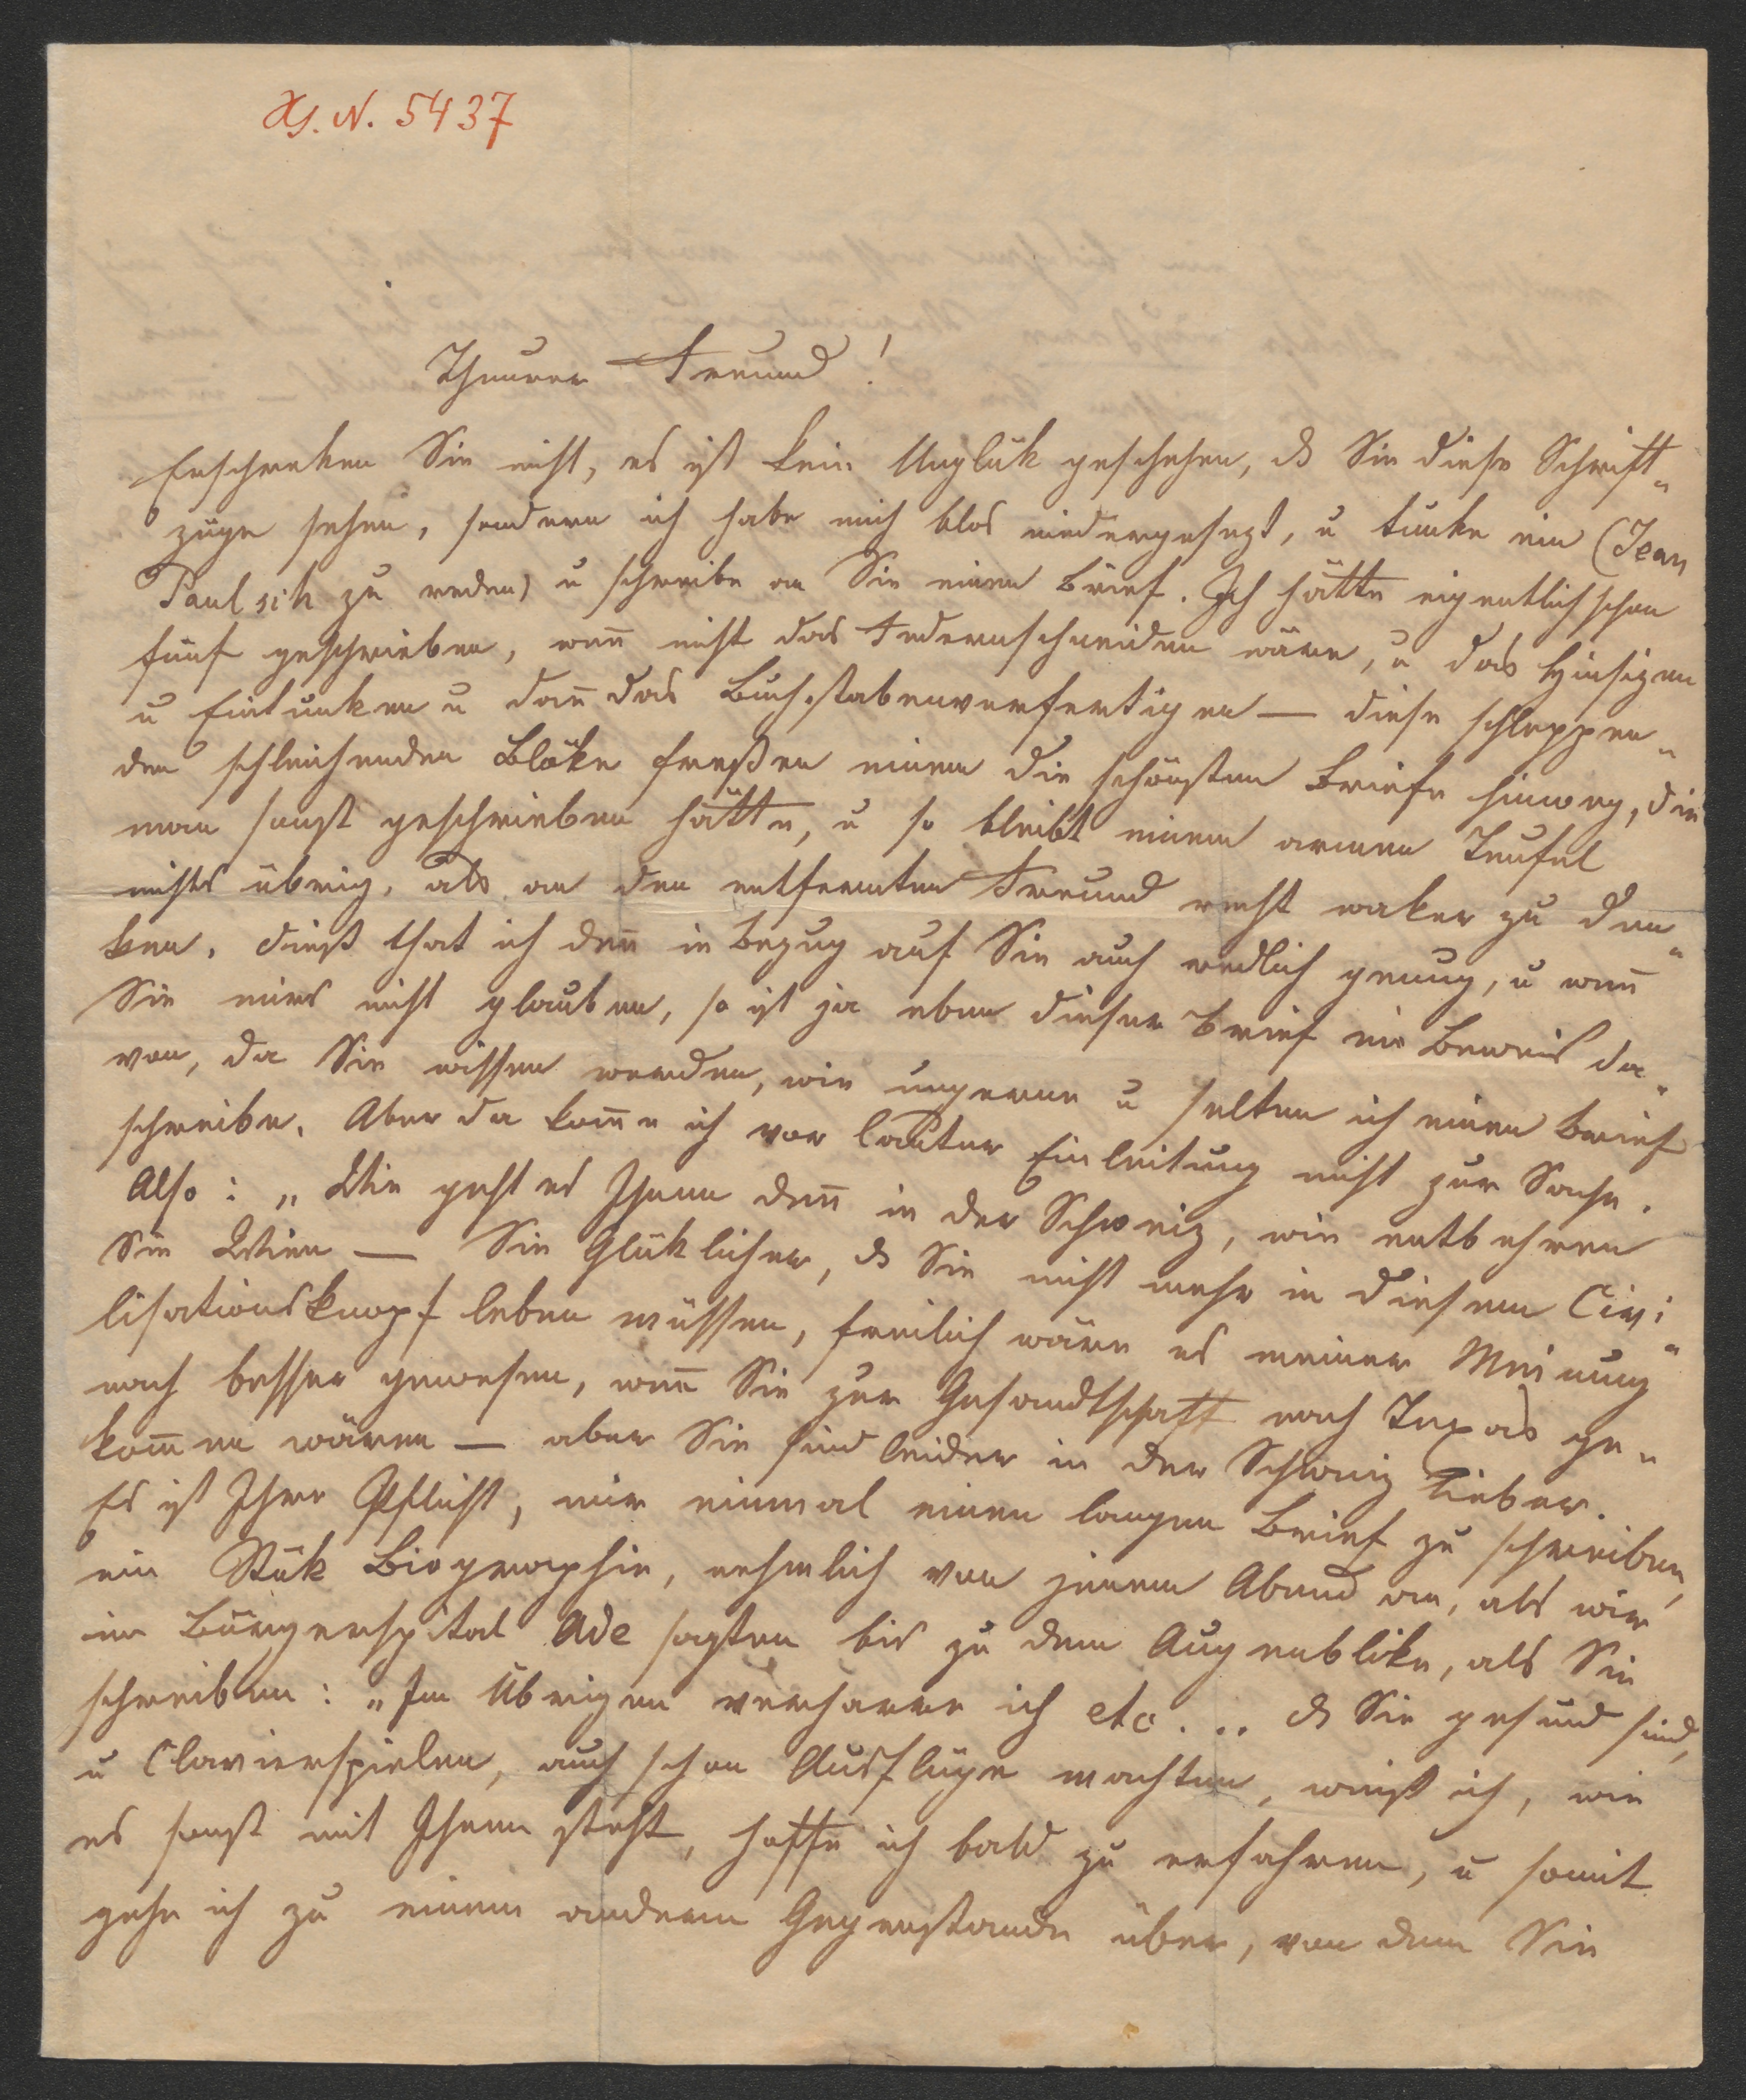 Hs. N. 5437
Theurer Freund!
Erschreken Sie nicht, es ist kein Unglük geschehen, daß Sie diese Schrift„
züge sehen, sondern ich habe mich blos niedergesezt, u tunke ein (Jean
Paulsch zu reden) u schreibe an Sie einen Brief. Ich hätte eigentlich schon
fünf geschrieben, wen̄ nicht das Federnschneiden wäre, u das Hinsizen
u Eintunken u dan̄ das Buchstabenverfertigen — diese schleppen„
den schleichenden Blöke freßen einem die schönsten Briefe hinweg, die
man sonst geschrieben hätte, u so bleibt einem armen Teufel
nichts übrig, als an den entfernten Freund recht waker zu den„
ken. Dieß that ich den̄ in Bezug auf Sie auch redlich genug, u wen̄
Sie mirs nicht glauben, so ist ja eben dieser Brief ein Beweis da„
von, da Sie wissen werden, wie ungerne u selten ich einen Brief
schreibe. Aber da kom̄e ich vor lauter Einleitung nicht zur Sache.
Also: „Wie geht es Ihnen den̄ in der Schweiz, wie entbehren
Sie Wien — Sie Glüklicher, daß Sie nicht mehr in diesem Civi„
lisationsknopf leben müssen, freilich wäre es meiner Meinung
nach besser gewesen, wen̄ Sie zur Gesandtschaft nach Texas ge„
kom̄en wären — aber Sie sind leider in der Schweiz lieber.
Es ist Ihre Pflicht, mir einmal einen langen Brief zu schreiben,
ein Stük Biographie, nehmlich von jenem Abend an, als wir
im Bürgerspital Ade sagten bis zu dem Augenblike, als Sie
schreiben: „Im Übrigen verharre ich etc. .. daß Sie gesund sind,
u Clavierspielen, auch schon Ausflüge machten, weiß ich, wie
es sonst mit Ihnen steht, hoffe ich bald zu erfahren, u somit
gehe ich zu einem andern Gegenstande über, von dem Sie